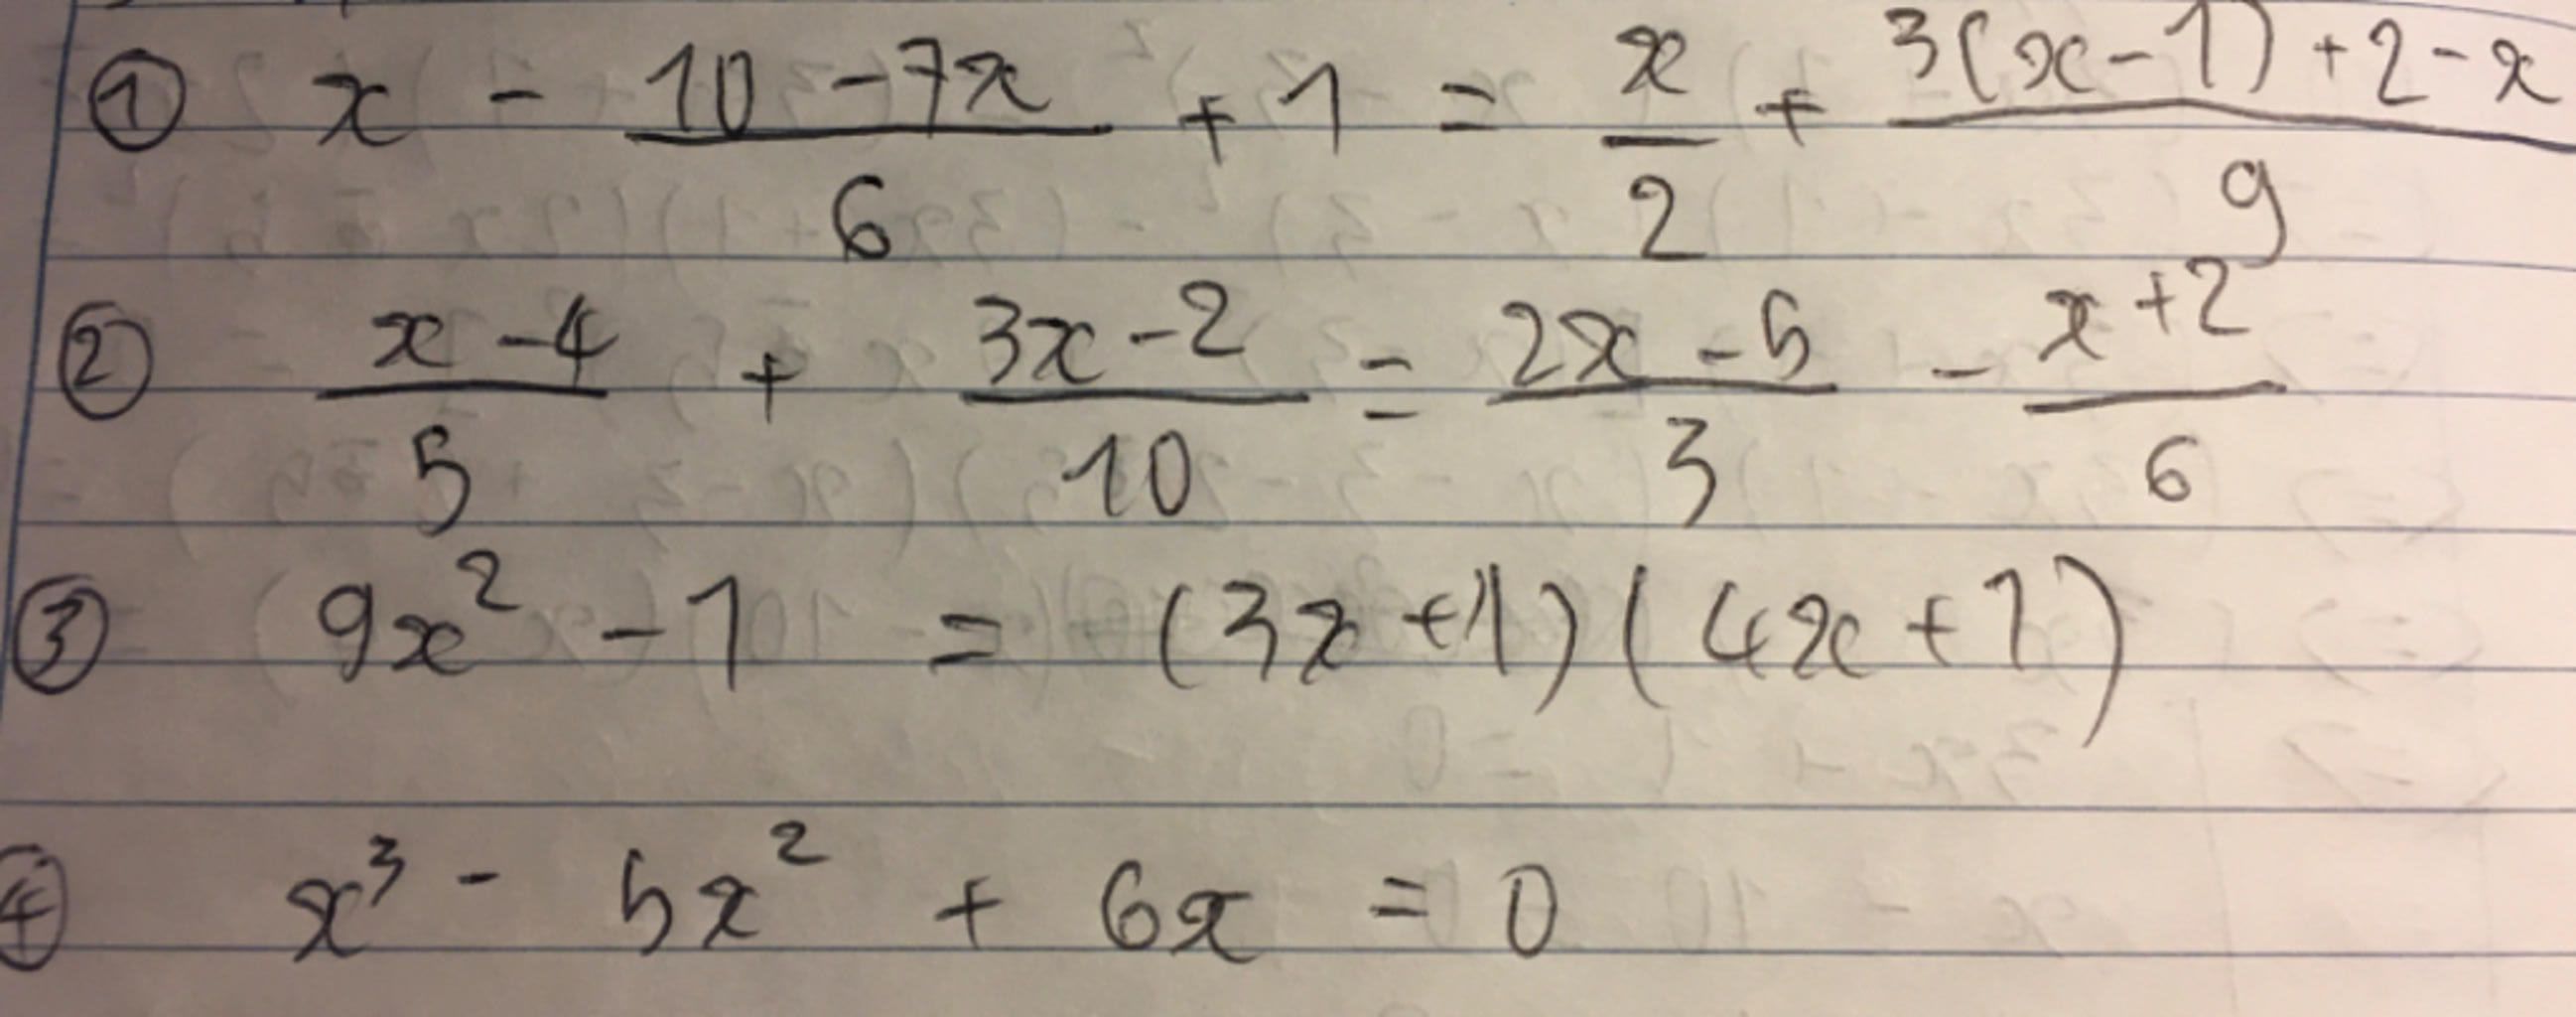 ① x - (10 - 7x)/6 + 1 = x/2 + (3(x - 1) + 2 - x)/9
② (x - 4)/5 + (3x - 2)/10 = (2x - 5)/3 - (x + 2)/6
③ 9x² - 1 = (3x + 1)(4x + 1)
④ x³ - 5x² + 6x = 0